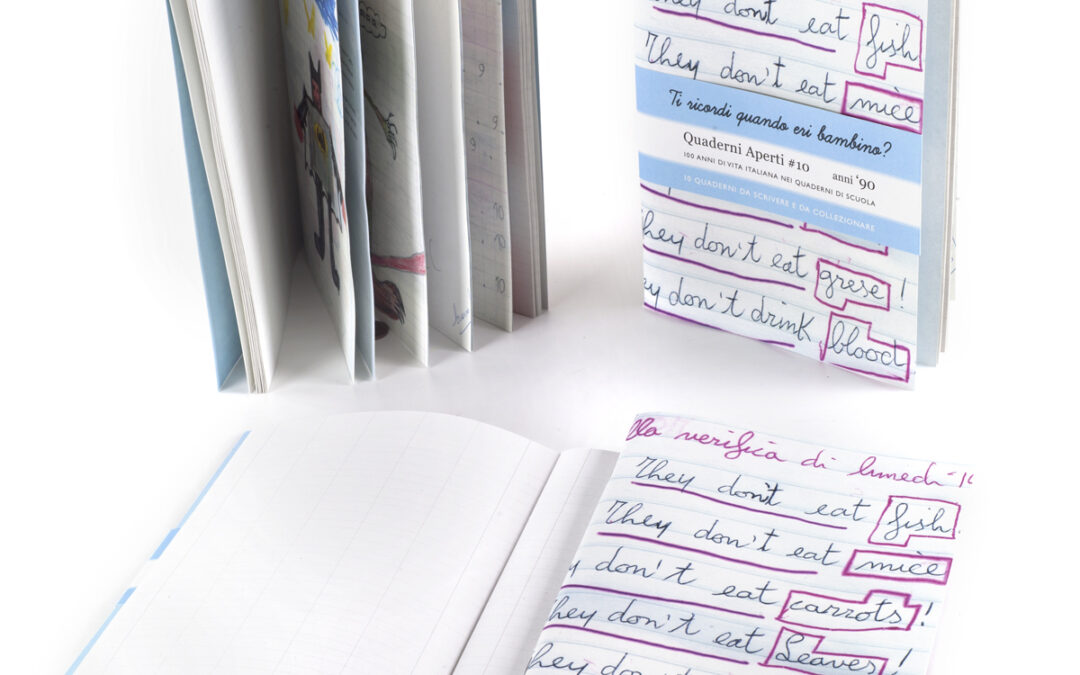 They don't eat fish
They don't eat mice
Ti ricordi quando eri bambino?
Quaderni Aperti #10 anni '90
100 ANNI DI VITA ITALIANA NEI QUADERNI DI SCUOLA
10 QUADERNI DA SCRIVERE E DA COLLEZIONARE
hey don't eat grese!
y don't drink blood
9
9
10
10
10
lla verifica di lunedì
They don't eat fish.
They don't eat mice
y don't eat carrots!
hey don't eat Leaves!
hey don